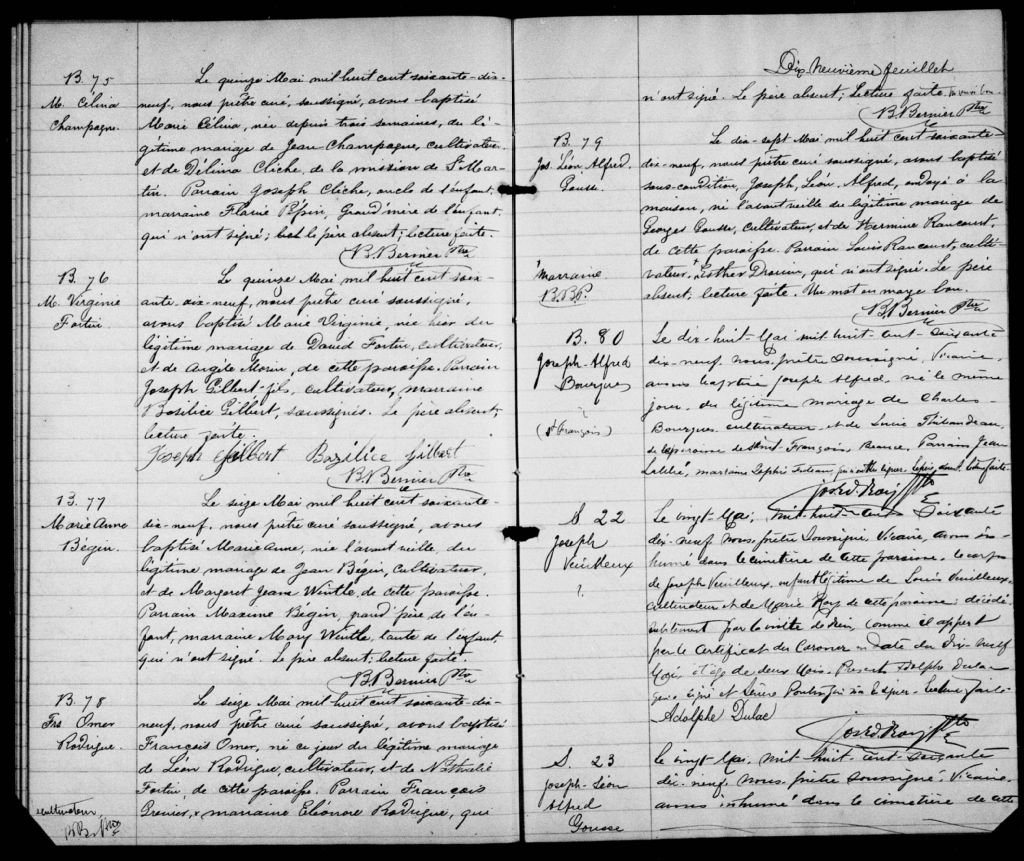 B. 75
M. Célina
Champagne.
Le quinze Mai mil huit cent soixante-dix-
neuf, nous prêtre curé, soussigné, avons baptisé
Marie Célina, née depuis trois semaines, du lé-
gitime mariage de Jean Champagne, cultivateur
et de Délina Cliche, de la mission de St Mar-
tin. Parrain Joseph Cliche, oncle de l'enfant,
marraine Flavie Pépin, Grand'mère de l'enfant,
qui n'ont signé; le père absent; lecture faite.
B. Bernier Ptre
B. 76
M. Virginie
Fortin
Le quinze Mai mil huit cent soix-
ante-dix-neuf, nous prêtre curé soussigné,
avons baptisé Marie Virginie, née hier du
légitime mariage de David Fortin, cultivateur,
et de Angèle Morin, de cette paroisse. Parrain
Joseph Gilbert fils, cultivateur, marraine
Basilice Gilbert, soussignés. Le père absent;
lecture faite.
Joseph Gilbert Bazilice Gilbert
B. Bernier Ptre
B. 77
Marie Anne
Bégin.
Le seize Mai mil huit cent soixante-
dix-neuf, nous prêtre curé soussigné, avons
baptisé Marie Anne, née l'avant veille, du
légitime mariage de Jean Bégin, cultivateur,
et de Margaret Jeane Wintle, de cette paroisse.
Parrain Maxime Bégin, grand'père de l'en-
fant, marraine Mary Wintle, tante de l'enfant,
qui n'ont signé. Le père absent; lecture faite.
B. Bernier Ptre
B. 78
Frs Omer
Rodrigue.
Le seize Mai mil huit cent soixante-dix-
neuf, nous prêtre curé soussigné, avons baptisé
François Omer, né ce jour du légitime mariage
de Léon Rodrigue, cultivateur, et de Nathalie
Fortin, de cette paroisse. Parrain François
Grenier, x marraine Eléonore Rodrigue, qui
x cultivateur
B. B. Ptre
Dix Neuvième feuillet
n'ont signé. Le père absent; Lecture faite.
B. Bernier Ptre
B. 79
Jos. Léon Alfred
Gousse.
Le dix-sept Mai mil huit cent soixante-
dix-neuf, nous prêtre curé soussigné, avons baptisé
sous-condition, Joseph, Léon, Alfred, ondoyé à la
maison, né l'avant veille du légitime mariage de
Georges Gousse, cultivateur, et de Hermine Rancourt,
de cette paroisse. Parrain Louis Rancourt, culti-
vateur, Esther Drouin, qui n'ont signé. Le père
absent; lecture faite. Un mot en marge bon.
Marraine
B. B. P.
B. Bernier Ptre
B. 80
Joseph-Alfred
Bourgues
(St François)
Le dix-huit Mai mil huit-cent-soixante
dix-neuf, nous, prêtre soussigné, Vicaire,
avons baptisé Joseph Alfred, né le même
jour, du légitime mariage de Charles
Bourgues cultivateur et de Lucie Thibaudeau,
de la paroisse de Saint François, Beauce, Parrain Jean
Labbé, marraine Sophie
Jos. Ed. Roy Ptre
S 22
Joseph
Veuilleux
Le vingt-Mai, mil-huit-cent Soixante
dix-neuf, nous, prêtre soussigné, Vicaire, avons in-
humé dans le cimetière de cette paroisse, le corps
de Joseph Veuilleux, enfant légitime de Louis Veuilleux,
cultivateur et de Marie Roy de cette paroisse; décédé
subitement par la visite de Dieu, comme il appert
par le Certificat du Coroner en date du Dix-neuf
Mai, et âgé de deux Mois. Présents Adolphe Dulac
qui a signé et
Lecture faite
Adolphe Dulac
Jos. Ed. Roy Ptre
S. 23
Joseph-Léon
Alfred
Gousse
Le vingt Mai, mil huit-cent-soixante
dix-neuf, nous, prêtre soussigné, Vicaire,
avons inhumé dans le cimetière de cette